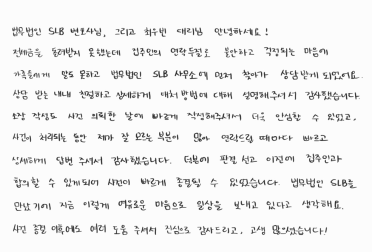 법무법인 SLB 변호사님, 그리고 최우빈 대리님 안녕하세요!
전세금을 돌려받지 못했는데 집주인의 연락두절로 불안하고 걱정되는 마음에
가족들에게 말도 못하고 법무법인 SLB 사무소에 먼저 찾아가 상담받게 되었어요.
상담 받는 내내 친절하고 상세하게 대처 방법에 대해 설명해주셔서 감사했습니다.
소장 작성도 사건 의뢰한 날에 빠르게 작성해주셔서 더욱 안심할 수 있었고,
사건이 처리되는 동안 제가 잘 모르는 부분이 많아 연락드릴 때마다 빠르고
상세하게 답변 주셔서 감사했습니다. 더불어 판결 선고 이전에 집주인과
합의할 수 있게되어 사건이 빠르게 종결될 수 있었습니다. 법무법인 SLB를
만났기에 지금 이렇게 여유로운 마음으로 일상을 보내고 있다고 생각해요.
사건 종결 이후에도 여러 도움 주셔서 진심으로 감사드리고, 고생 많으셨습니다!